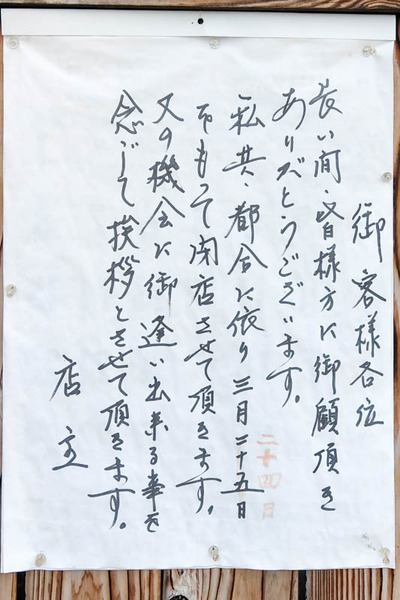 御客様各位
長い間、皆様方に御願頂き
ありがとうございます。
私共、都合に依り三月二十五日
二十四日
をもって閉店させて頂きます。
又の機会に御逢い出来る事を
念じて挨拶とさせて頂きます。
店主